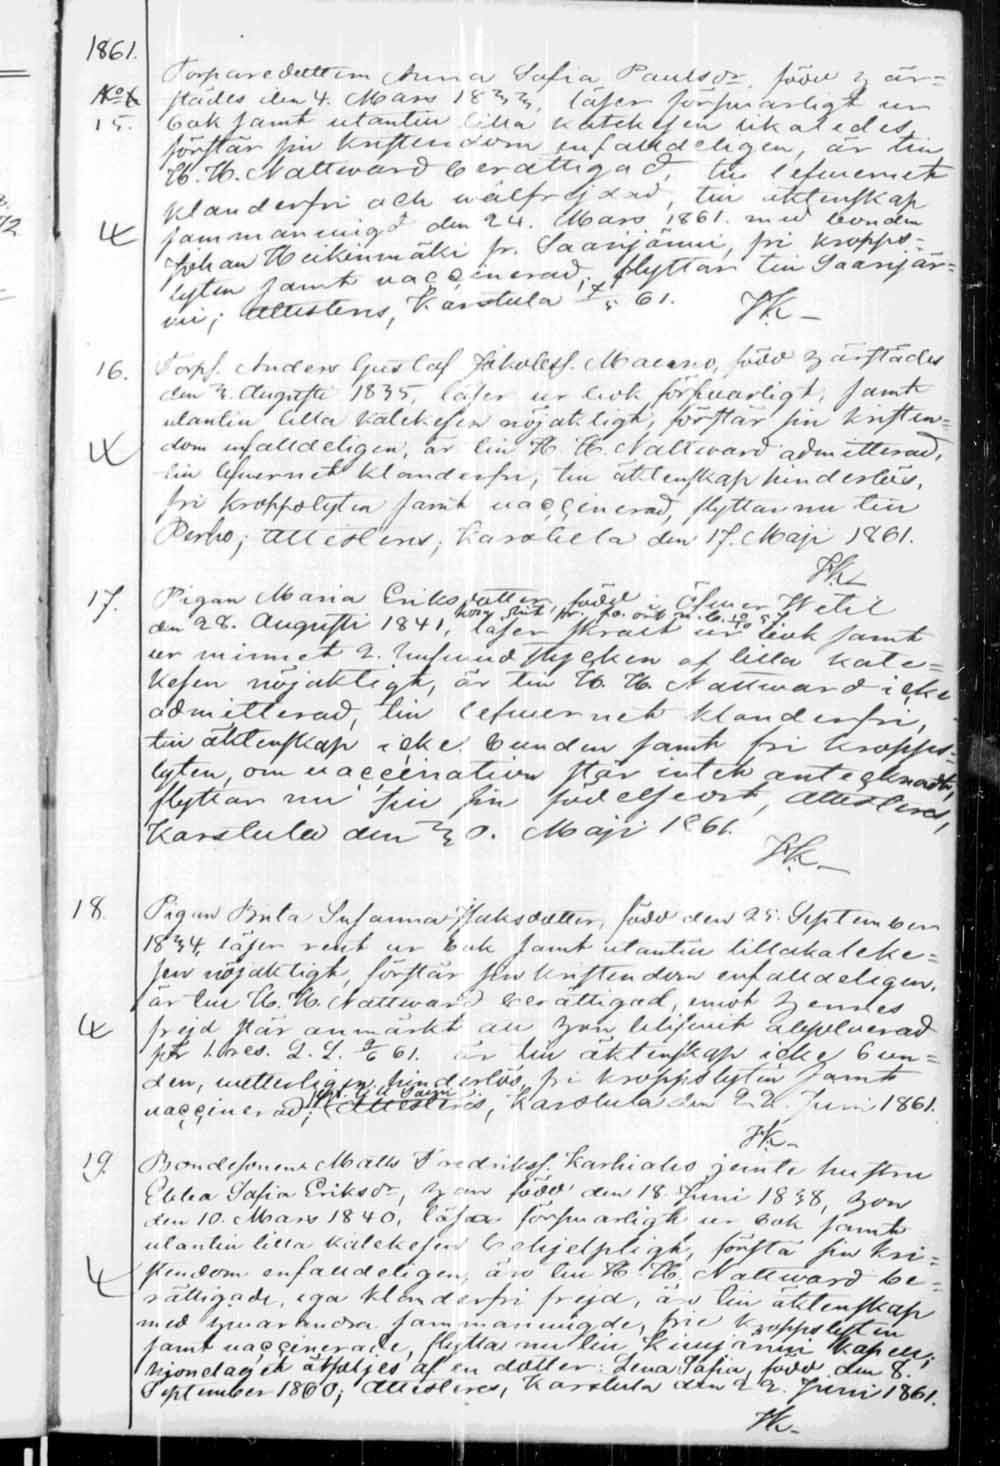 1861.
Torparedottern Anna Sofia Paulsdr, född härstädes
No 15. den 4. Mars 1833, läser förswarligt ur
bok samt utantill lilla katekesen likaledes,
förstår sin kristendom enfaldeligen, är till
H. H. Nattward berättigad, till lefwernet
klanderfri och wälfrejdad, till äktenskap
sammanwigd den 24. Mars 1861. med bonden
Johan Heikinmäki fr. Saarijärvi, fri kropps-
lyten samt vaccinerad; flyttar till Saarijär-
vi; attesteras, Karstula 61.
16. Torps. Anders Gustaf Jakobss. född härstädes
den 3. Augusti 1835, läser ur bok förswarligt, samt
utantill lilla katekesen nöjaktligt, förstår sin kristen-
dom enfalldeligen, är till H. H. Nattward admitterad,
till lefwernet klanderfri, till äktenskap hinderlös,
fri kroppslyten samt vaccinerad, flyttar nu till
Perho; attesteras, Karstula den 17. Maji 1861.
17. Pigan Maria Eriksdotter, född i Öfwer Wetil
den 28. Augusti 1841, läser skralt ur bok samt
ur minnet 2. hufwudstycken af lilla kate-
kesen nöjaktligt, är till H. H. Nattward icke
admitterad, till lefwernet klanderfri,
till äktenskap icke bunden samt fri kropps-
lyten, om vaccination står intet antecknadt,
flyttar nu till sin födelseort, attesteras,
Karstula den 30. Maji 1861.
18. Pigan Brita Susanna Isaksdotter, född den 25. September
1834, läser rent ur bok samt utantill lilla kateke-
sen nöjaktligt, förstår sin kristendom enfalldeligen,
är till H. H. Nattward berättigad, emot hennes
frejd står anmärkt att hon blifwit absolverad
för 1. res. L. L. 61. är till äktenskap icke bun-
den, wetterligen hinderlös, fri kroppslyten samt
vaccinerad; attesteras, Karstula den 22. Juni 1861.
19. Bondesonen Matts Fredrikss. Karhiaho jemte hustru
Ebba Sofia Eriksdr, han född den 18. Juni 1838, hon
den 10. Mars 1840, läsa förswarligt ur bok samt
utantill lilla katekesen behjelpligt, förstå sin kri-
stendom enfalldeligen, äro till H. H. Nattward be-
rättigade, ega klanderfri frejd, äro till äktenskap
med hwarandra sammanwigde, frie kroppslyten
samt vaccinerade, flytta nu till Kiwijärwi kapell;
hjonelaget åtföljes af en dotter: Lena Sofia, född den 8.
September 1860; attesteras, Karstula den 22. Juni 1861.